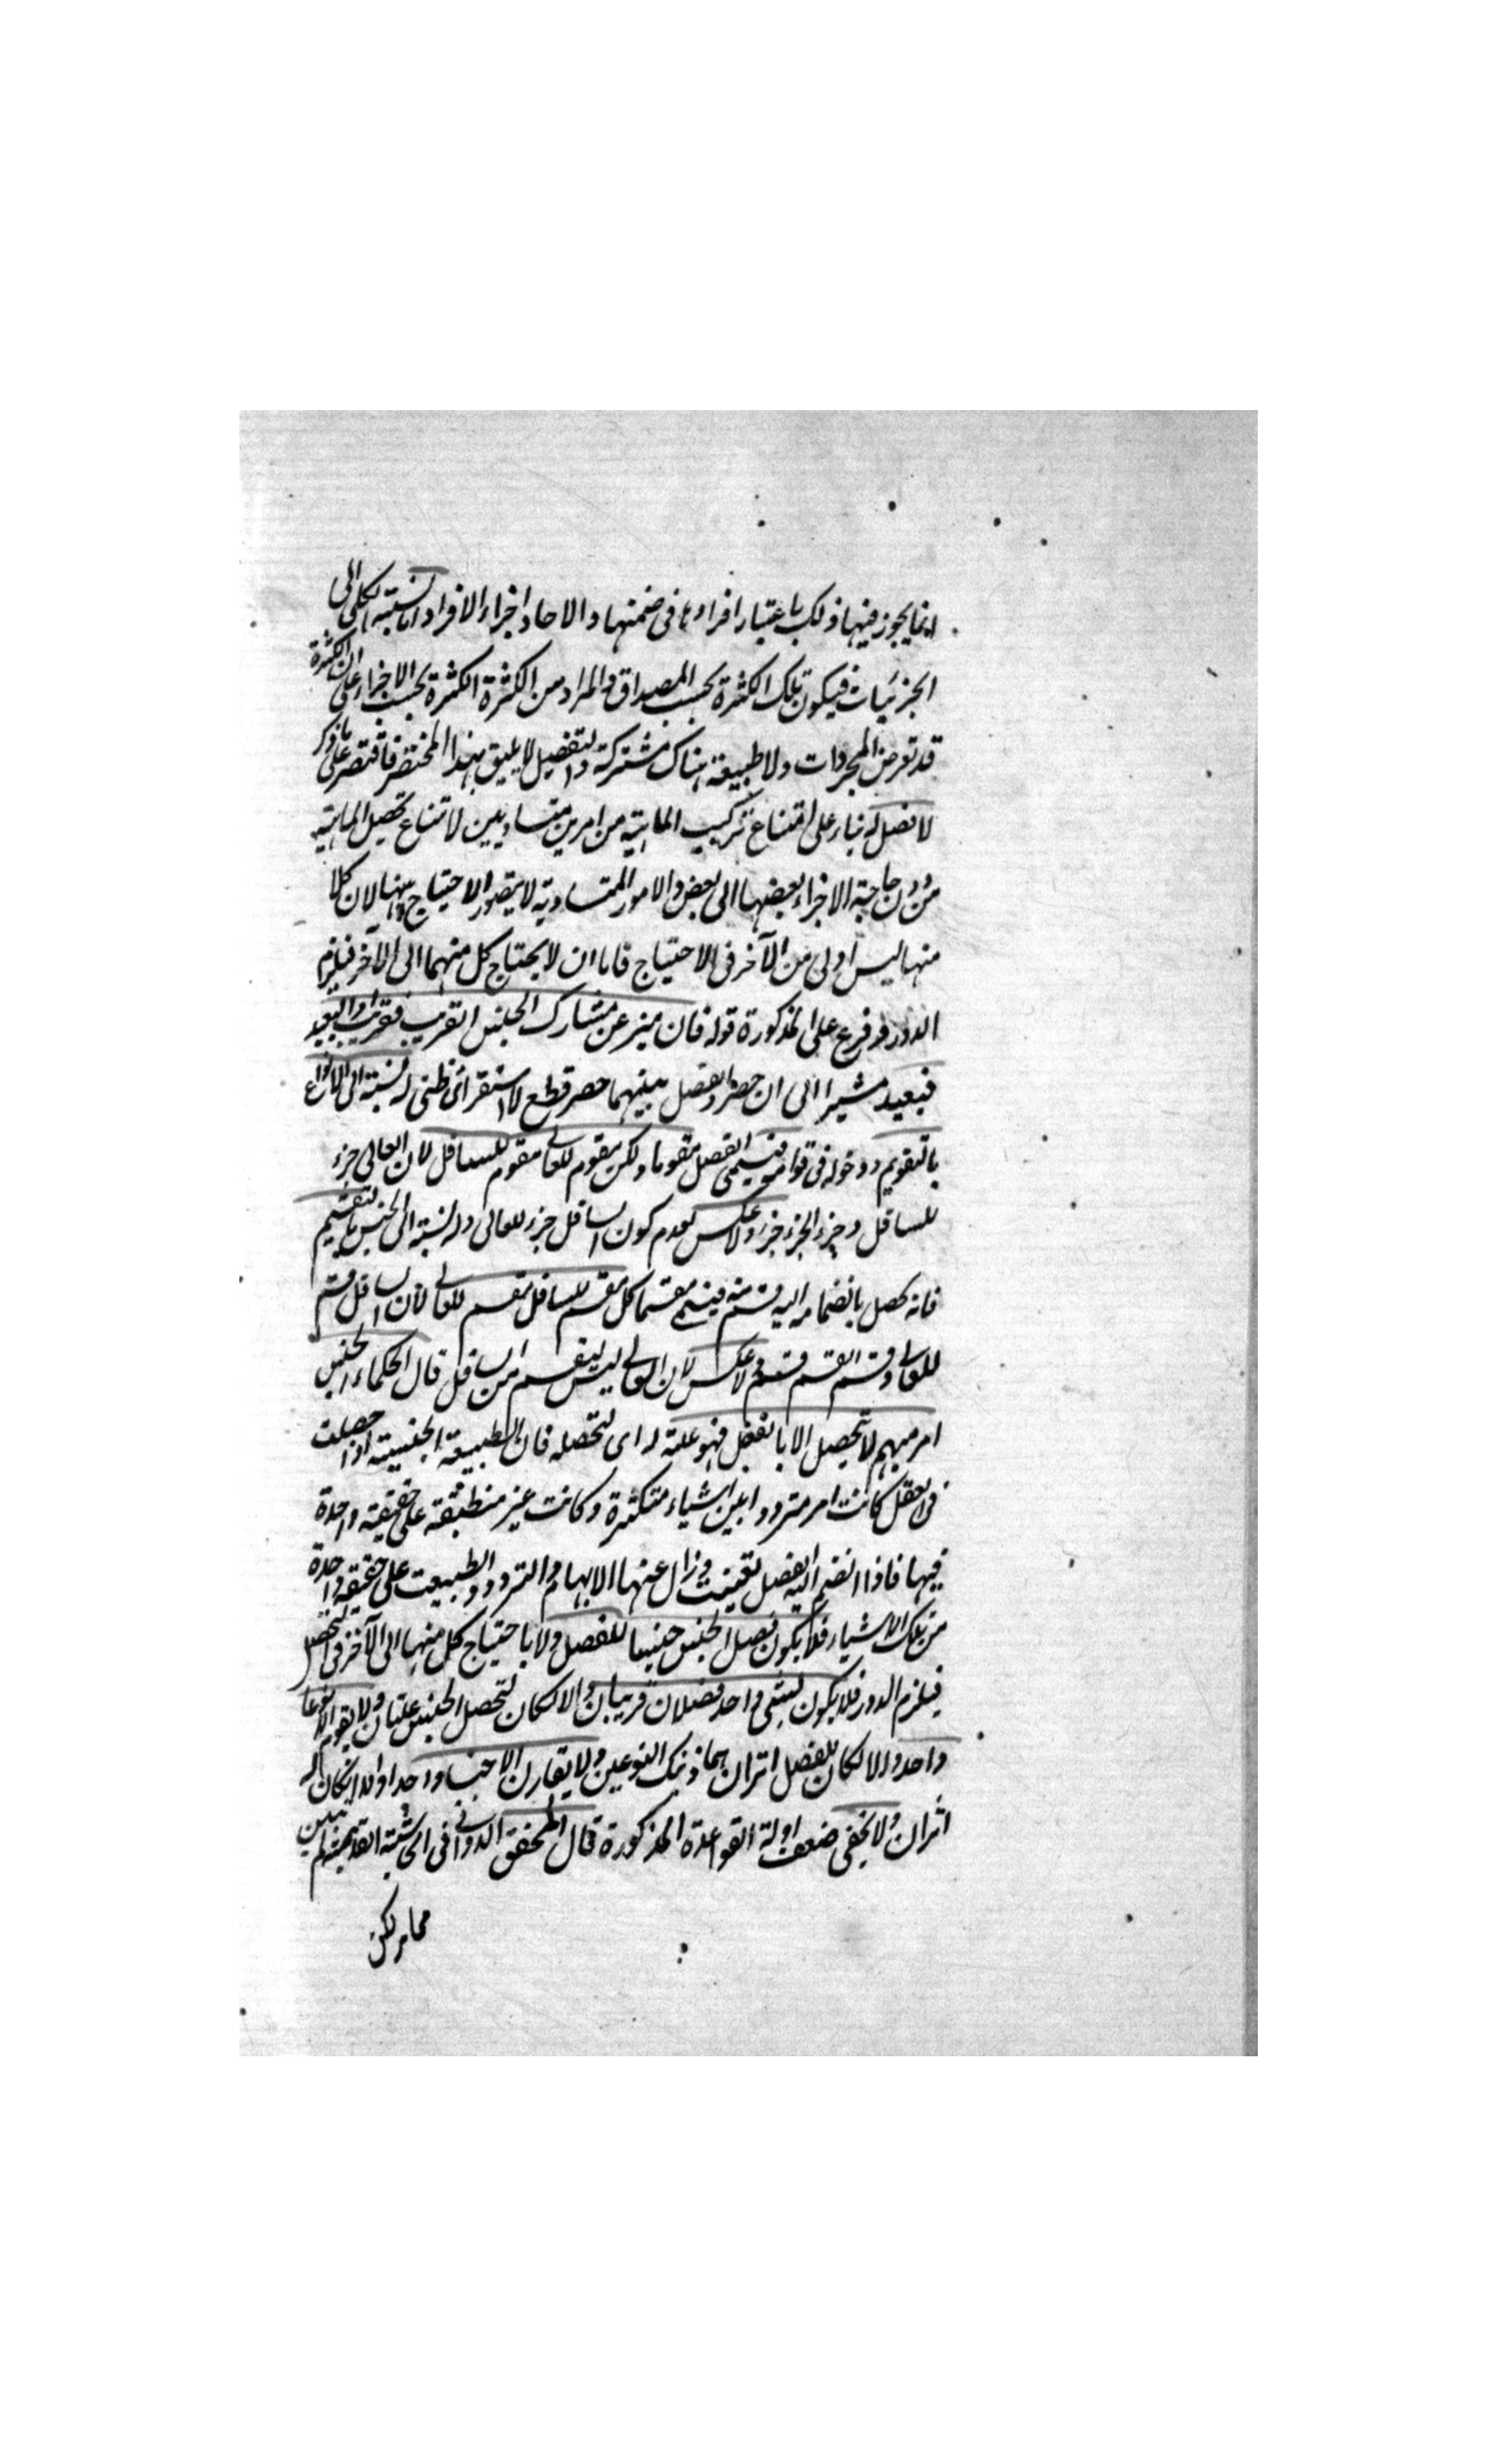 انما يجوز فيها ذلك باعتبار افرادها فى ضمنها والاحاد اجزاء الافراد اما نسبته الكلى الى
الجزئيات فيكون تلك الكثرة بحسب المصداق والمراد من الكثرة الكثرة بحسب الاجزاء على ان الكثرة
قد تعرض المجردات ولا طبيعة هناك مشتركة والتفصيل لا يليق بهذا المختصر فاقتصر على ما ذكر
لا فصل له بناء على امتناع تركيب الماهية من امرين متساويين لامتناع تحصل الماهية
من دون حاجة الاجزاء بعضها الى بعض والامور المتساوية لا يتصور الاحتياج بينها لان كلا
منها ليس اولى من الآخر فى الاحتياج فاما ان لا يحتاج كل منهما الى الآخر فيلزم
الدور وفرع على المذكورة قوله فان ميز عن مشارك الجنس القريب فقريب او البعيد
فبعيد مشيرا الى ان حصر الفصل بينهما حصر قطع لا استقرائى ظنى له نسبة الى الانواع
بالتقويم ودخوله فى قوامه فيسمى الفصل مقوما ولكن مقوم للعالى مقوم للسافل لان العالى جزء
للسافل وجزء الجزء جزء ولا عكس لعدم كون السافل جزء للعالى وله نسبة الى الجنس بالتقسيم
فانه يحصل بانضمامه اليه قسم منه فيسمى مقسما كل مقسم للسافل مقسم للعالى لأن السافل قسم
للعالى وقسم القسم قسم ولا عكس لان العالى ليس بقسم من السافل قال الحكماء الجنس
امر مبهم لا يتحصل الا بالفصل فهو علة له اى لتحصله فان الطبيعة الجنسية اذا حصلت
فى العقل كانت امر مترددا بين اشياء متكثرة وكانت غير منطبقة على حقيقة واحدة
فيها فاذا انضم اليه الفصل تعينت وزال عنها الابهام والتردد والطبيعت على حقيقة واحدة
من تلك الاشياء فلا يكون فصل الجنس جنسا للفصل ولا باحتياج كل منها الى الآخر فى التحصل
فيلزم الدور فلا يكون لشئ واحد فصلان قريبان والا لكان لتحصل الجنس علتان ولا يقوم الا نوعا
واحد والا لكان للفصل اثران هما ذينك النوعين ولا يقارن الا جنسا واحدا والا لكان له
اثران ولا يخفى ضعف ادلة القواعدة المذكورة قال المحقق الدوانى فى الحاشية القديمة لم يتبين
مما مر لكن